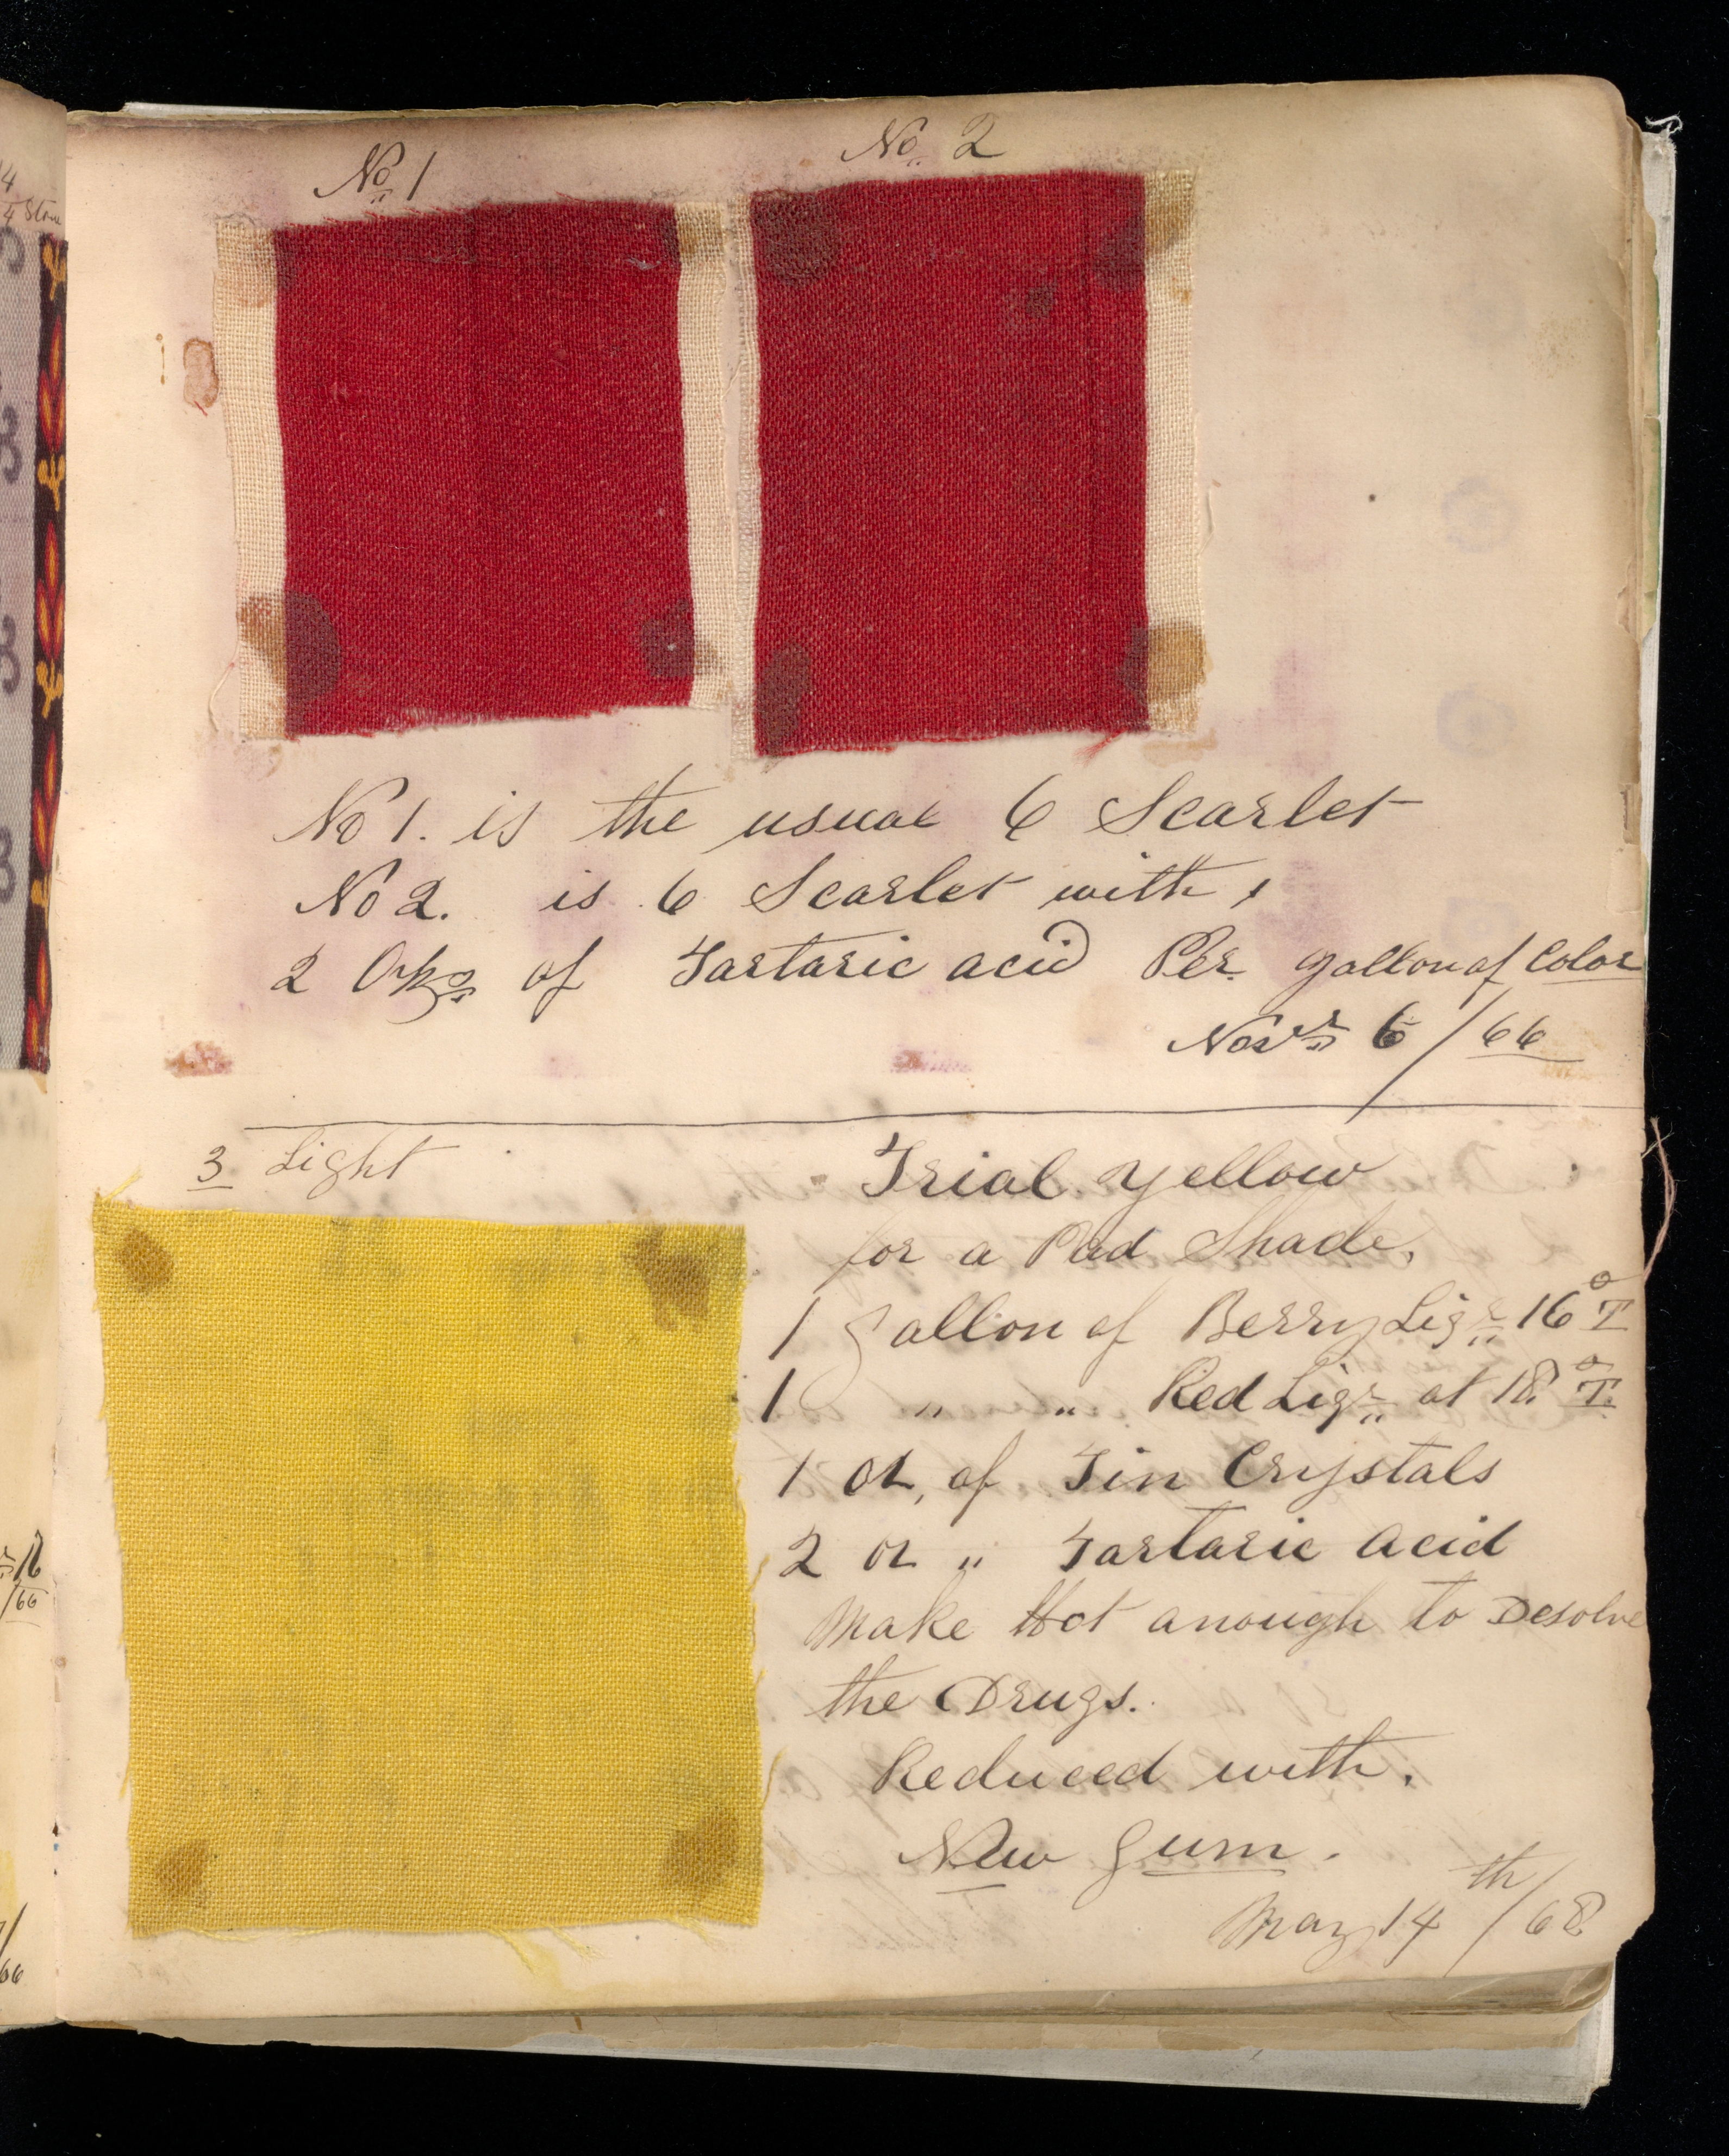 No 1
No 2
No 1. is the usual 6 Scarlet
No 2. is 6 Scarlet with,
2 of Tartaric acid Per gallon of Color
Novr 6/66
3 Light
Trial Yellow
for a Pad Shade.
1 gallon of Berry Liqr 16° T
1 " " Red Liqr at 18° T.
1 oz, of Tin Crystals
2 oz " Tartaric acid
Make Hot anough to Desolve
the Drugs.
Reduced with.
New Gum.
May 14th/68